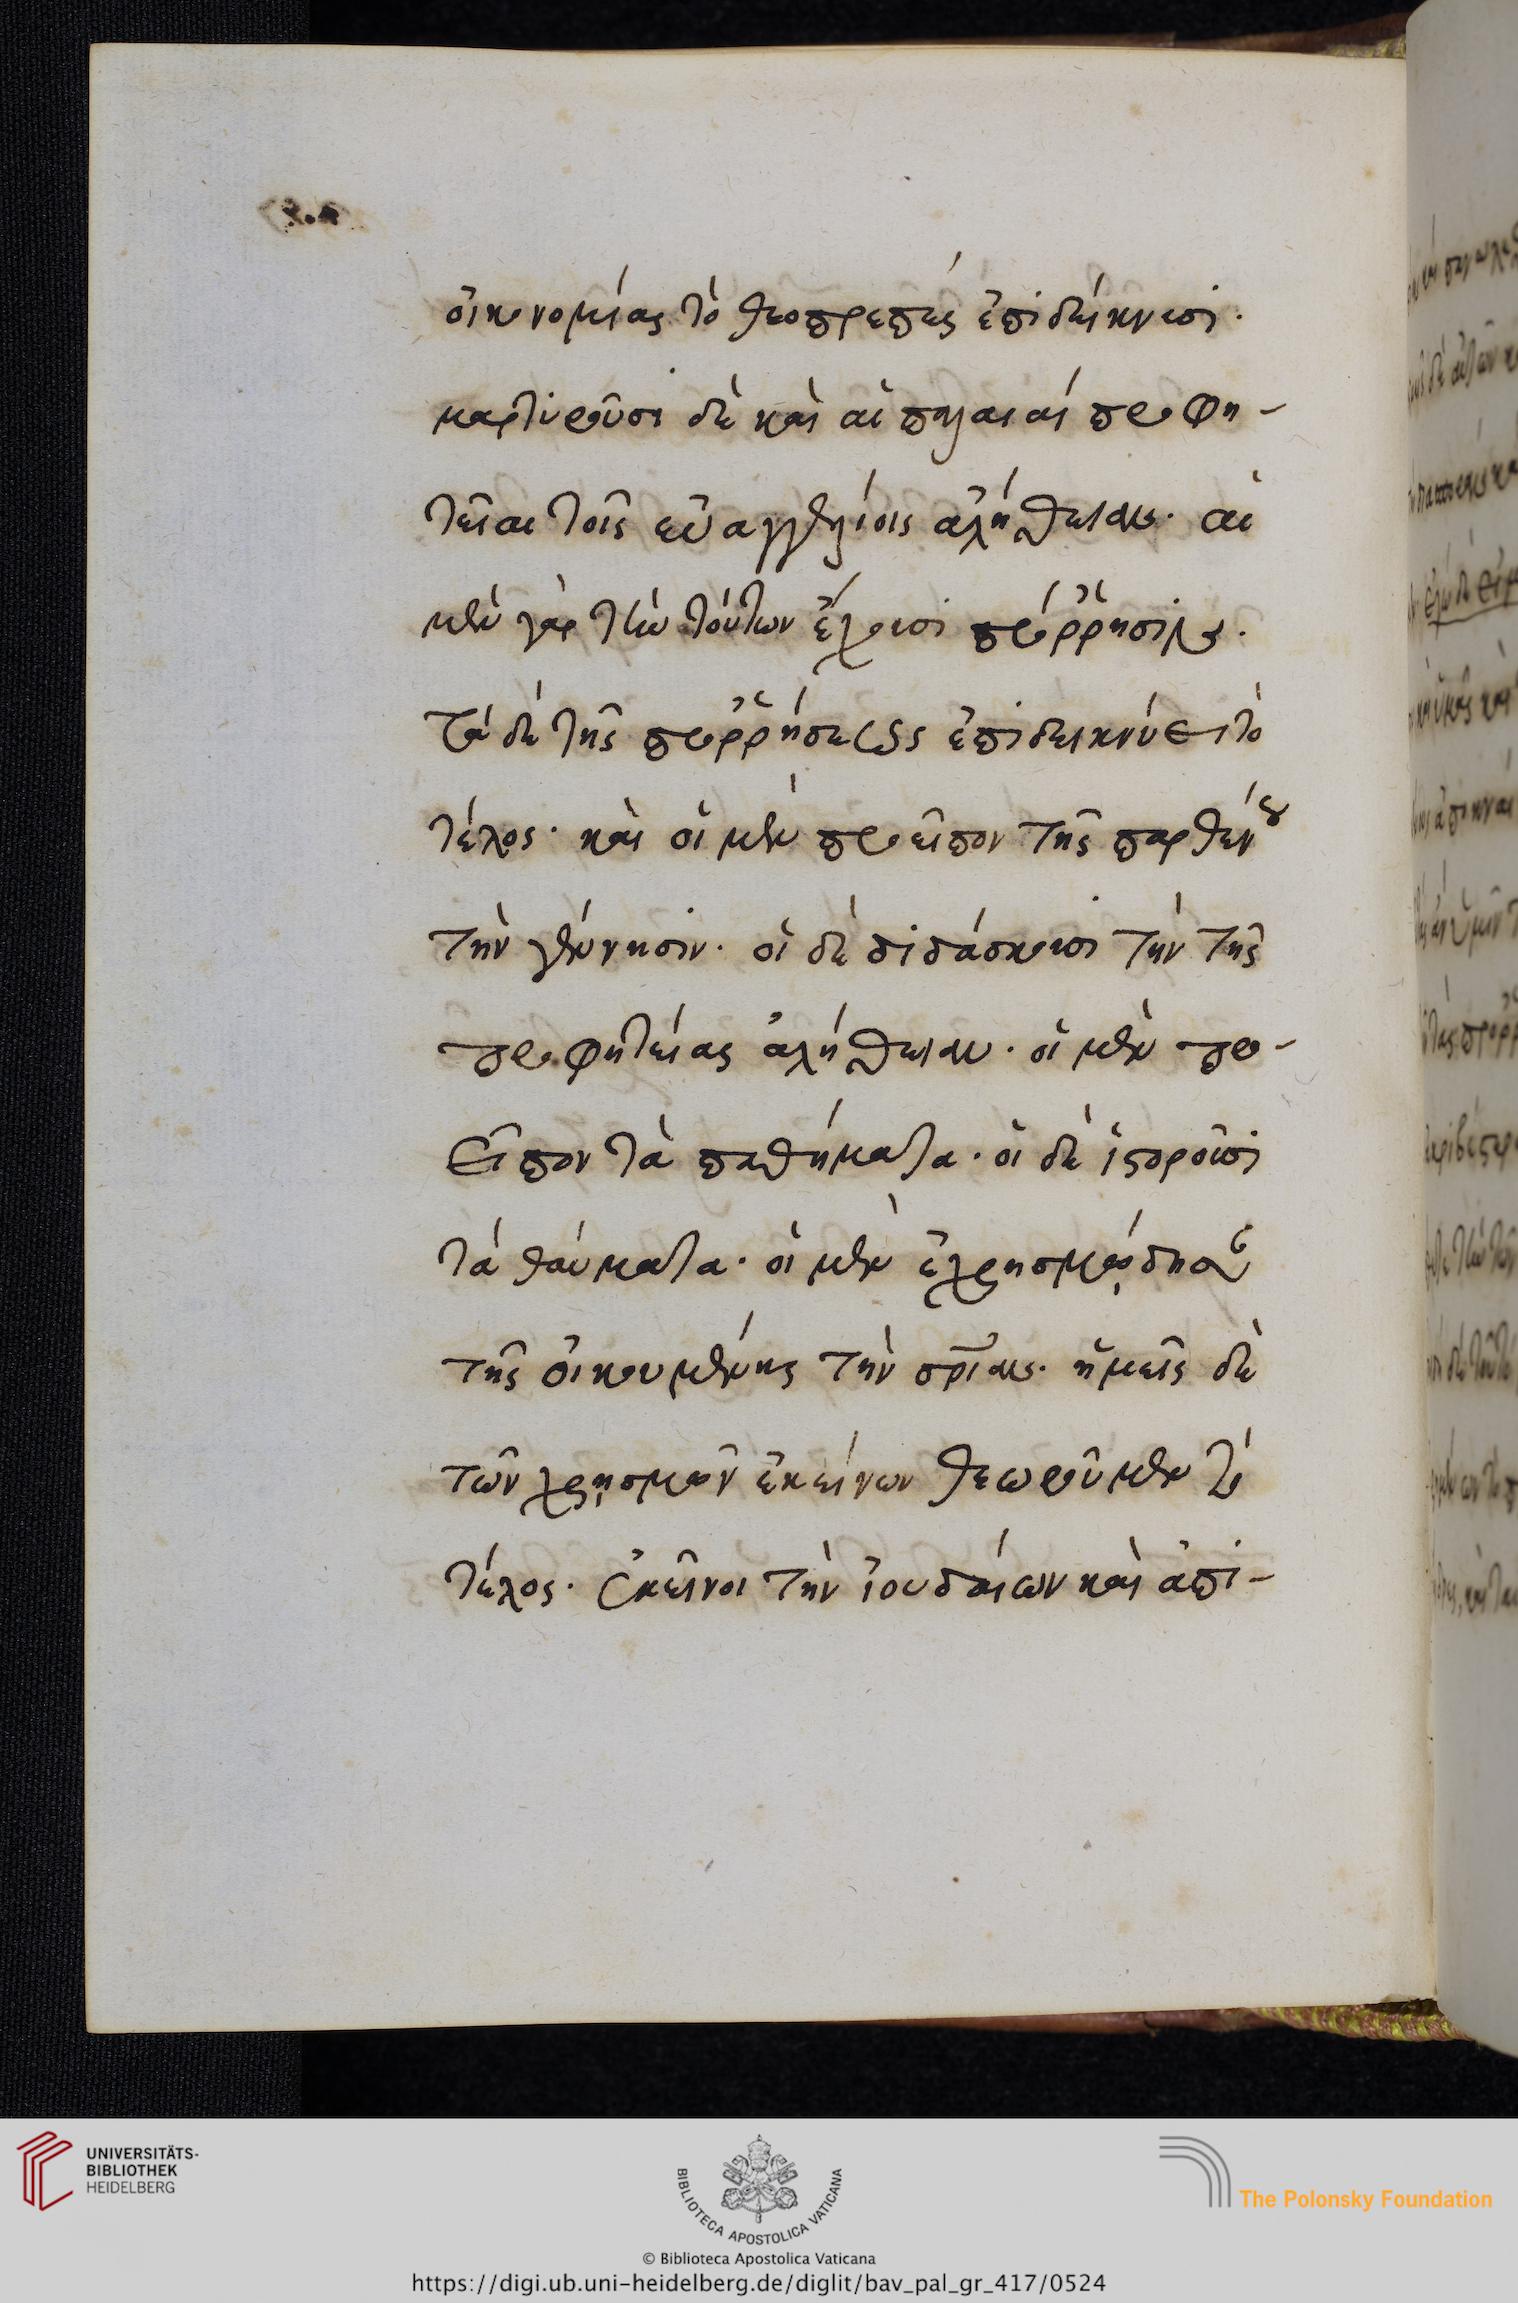 οἰκονομίας τὸ θεοπρεπὲς ἐπιδείκνυσι·
μαρτυροῦσι δὲ καὶ αἱ παλαιαὶ προφη-
τεῖαι τοῖς εὐαγγελίοις ἀλήθειαν· αἱ
μὲν γὰρ τὴν τούτων ἔχουσι πρόῤῥησιν·
τὰ δὲ τῆς προῤῥήσεως ἐπιδεικνύει τὸ
τέλος· καὶ οἱ μὲν προεῖπον τῆς παρθένου
τὴν γέννησιν· οἱ δὲ διδάσκουσι τὴν τῆς
προφητείας ἀλήθειαν· οἱ μὲν προ-
εῖπον τὰ παθήματα· οἱ δὲ ἱστοροῦσι
τὰ θαύματα· οἱ μὲν ἐχρησμῴδησαν
τῆς οἰκουμένης τὴν σρίαν· ἡμεῖς δὲ
τῶν χρησμῶν ἐκείνων θεωροῦμεν τὸ
τέλος· ἐκεῖνοι τὴν ἰουδαίων καὶ ἀπι-
UNIVERSITÄTS-
BIBLIOTHEK
HEIDELBERG
BIBLIOTECA APOSTOLICA VATICANA
The Polonsky Foundation
© Biblioteca Apostolica Vaticana
https://digi.ub.uni-heidelberg.de/diglit/bav_pal_gr_417/0524